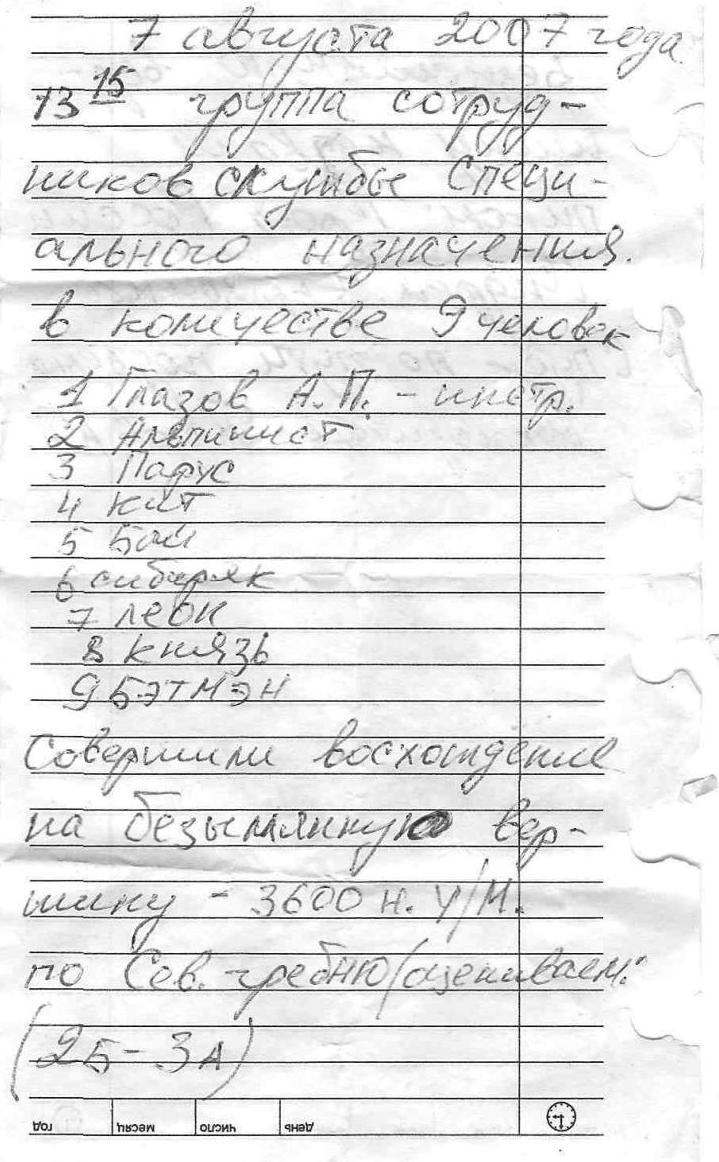 7 августа 2007 года
13 15 группа сотруд-
ников службы специ-
ального назначения.
в количестве 9 человек
1 Глазов А.П. - инстр.
2 Альпинист
3 Парус
4 Кит
5 Бай
6 сибиряк
7 леон
8 князь
9 Бэтмэн
Совершили восхождение
на безымянную вер-
шину - 3600 н.у/м.
по Сев. гребню/оцениваем:
(2Б - 3А)
год месяц число день